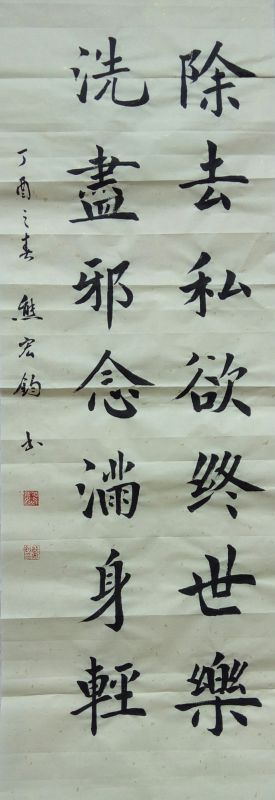 除去私欲终世樂
洗盡邪念滿身輕
丁酉之春 熊宏鈞書